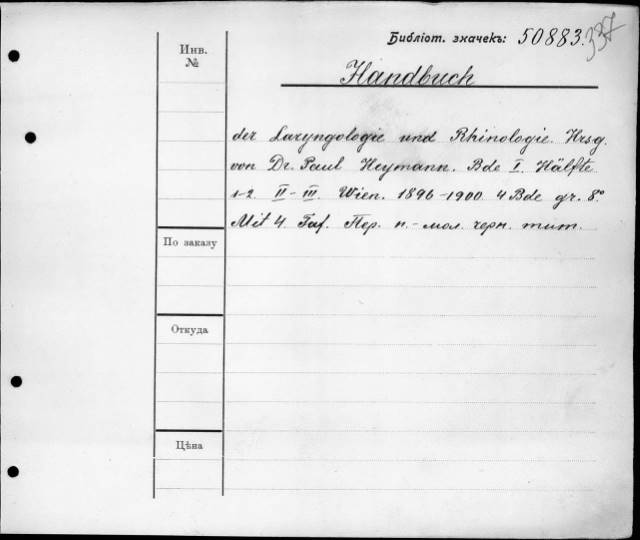 Библіот. значекъ: 50883.
337
Инв.
№
Handbuch
der Laryngologie und Rhinologie. Hrsg.
von Dr. Paul Heymann. Bde I. Hälfte
1-2. II-III. Wien. 1896-1900. 4 Bde gr. 8°
Mit 4. Taf. Пер. н.-мол. черн. тит.
По заказу
Откуда
Цѣна